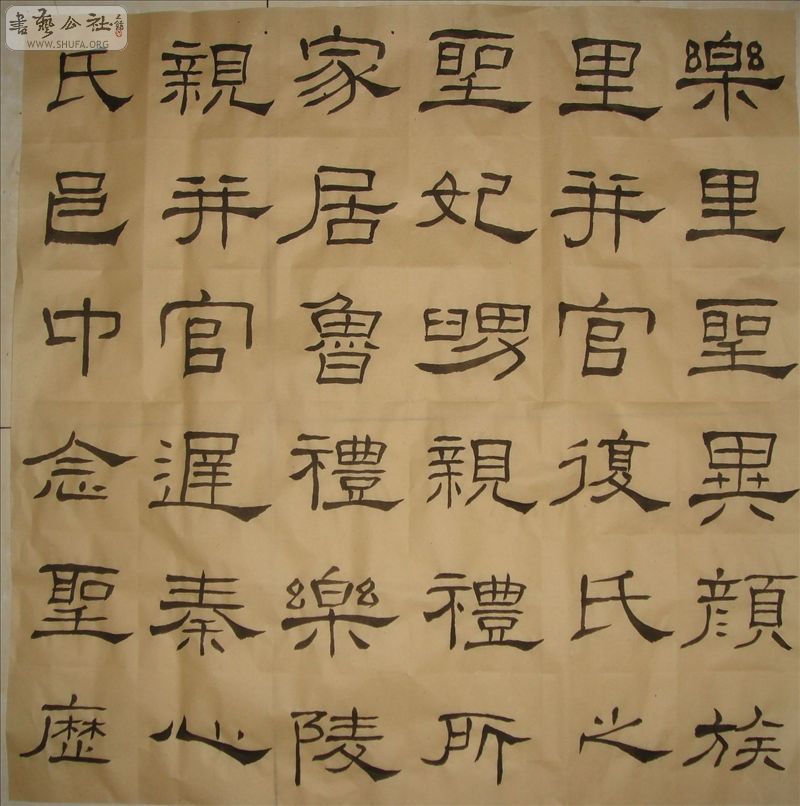 書藝公社
WWW.SHUFA.ORG
樂里聖異顏族
里并官復氏之
聖妃舅親禮所
家居魯禮樂陵
親并官遲秦心
氏邑中念聖歷